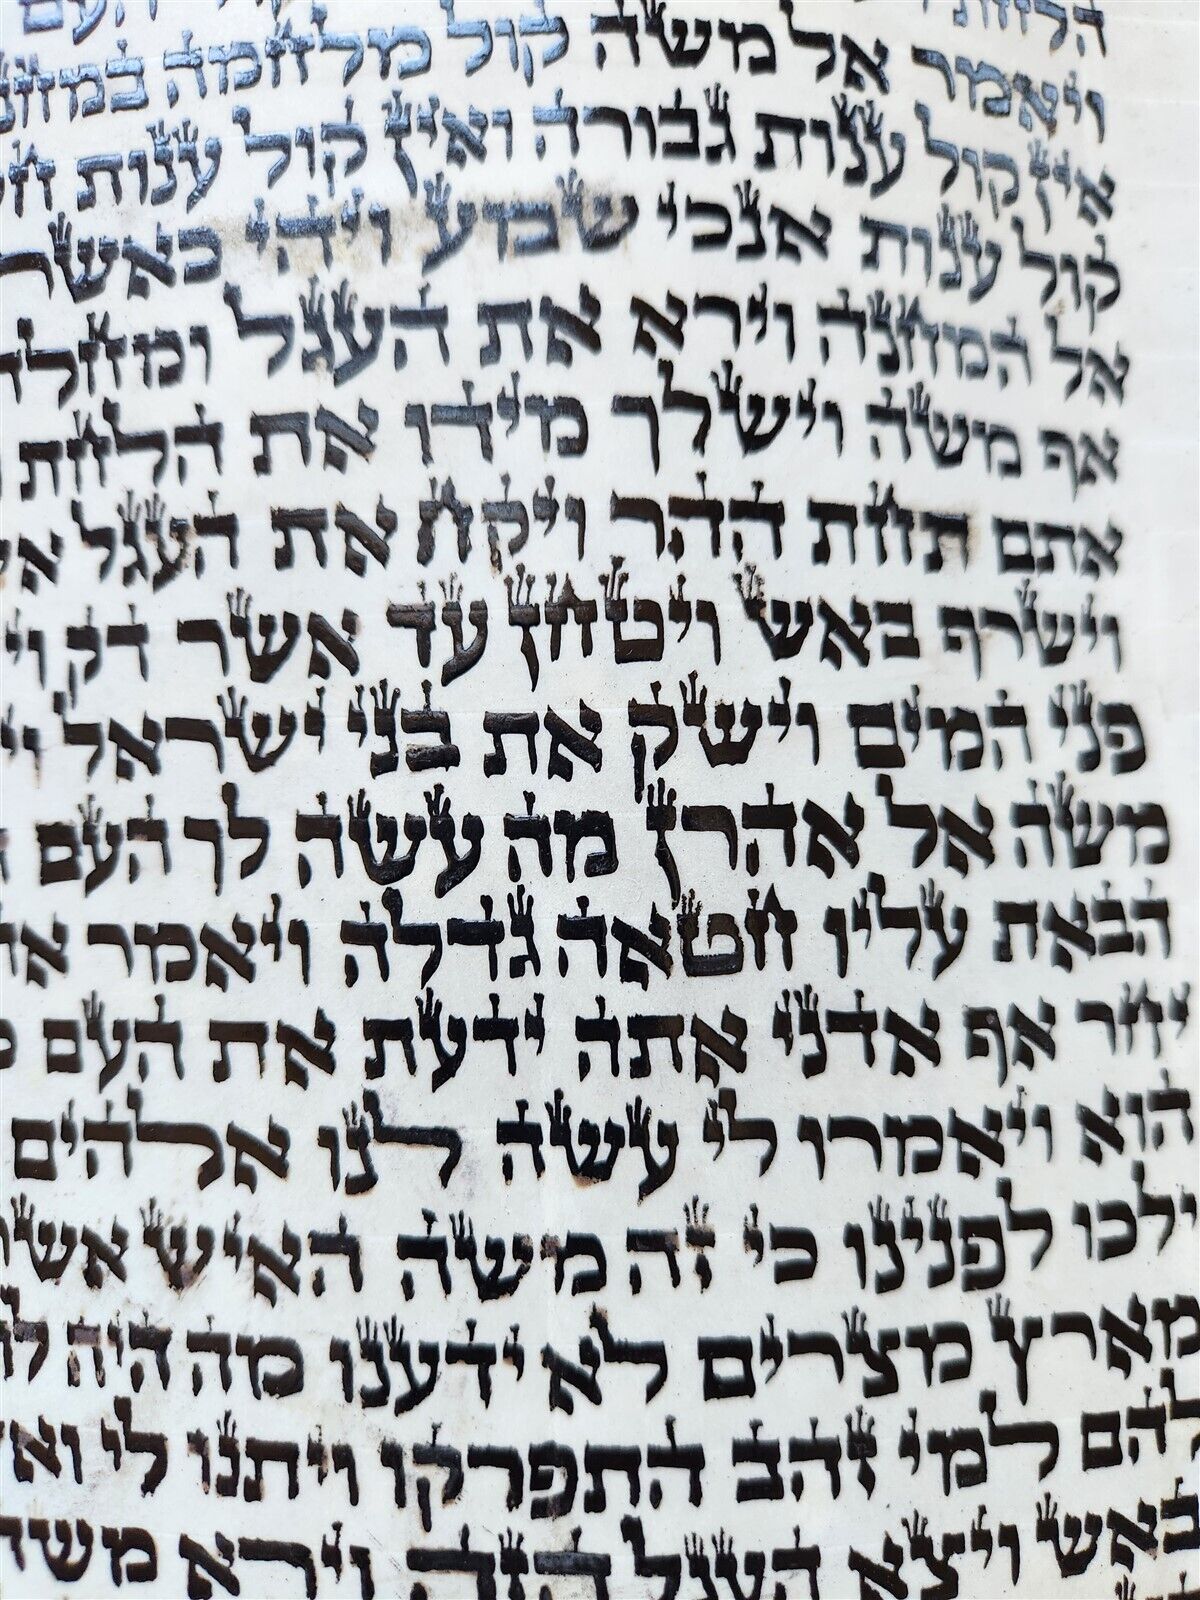 הלחת
ויאמר אל משה קול מלחמה במחנ
אין קול ענות גבורה ואין קול ענות
קול ענות אנכי שמע ויהי כאשר
אל המחנה וירא את העגל ומחלת
אף משה וישלך מידו את הלחת
אתם תחת ההר ויקח את העגל
וישרף באש ויטחן עד אשר דק וי
פני המים וישק את בני ישראל
משה אל אהרן מה עשה לך העם
הבאת עליו חטאה גדלה ויאמר
יחר אף אדני אתה ידעת את העם
הוא ויאמרו לי עשה לנו אלהים
ילכו לפנינו כי זה משה האיש אשר
מארץ מצרים לא ידענו מה היה לו
להם למי זהב התפרקו ויתנו לי
באש ויצא העגל הזה וירא משה